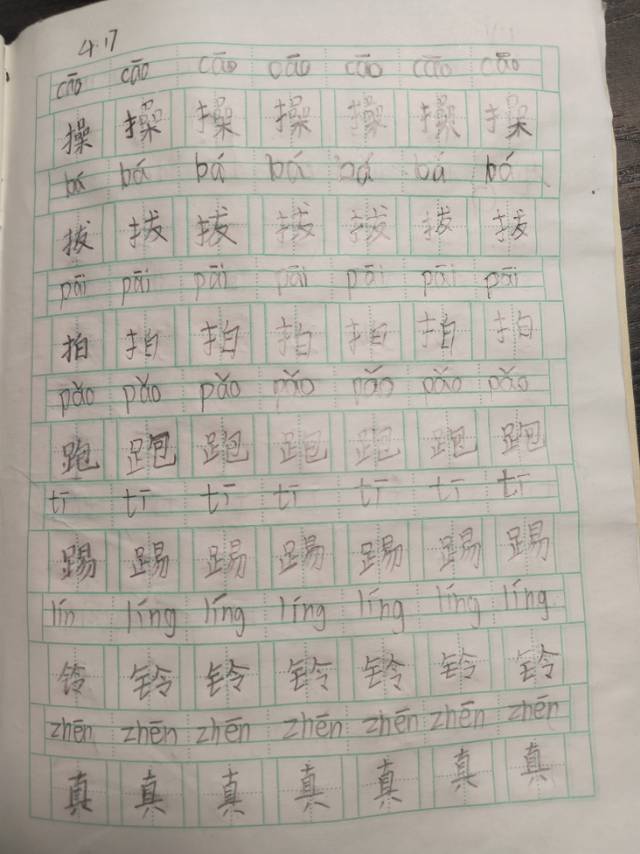 4.17
cāo cāo cāo cāo cāo cāo cāo
操 操 操 操 操 操 操
bá bá bá bá bá bá bá
拔 拔 拔 拔 拔 拔 拔
pāi pāi pāi pāi pāi pāi pāi
拍 拍 拍 拍 拍 拍 拍
pǎo pǎo pǎo pǎo pǎo pǎo pǎo
跑 跑 跑 跑 跑 跑 跑
tī tī tī tī tī tī tī
踢 踢 踢 踢 踢 踢 踢
lín líng líng líng líng líng líng
铃 铃 铃 铃 铃 铃 铃
zhēn zhēn zhēn zhēn zhēn zhēn zhēn
真 真 真 真 真 真 真